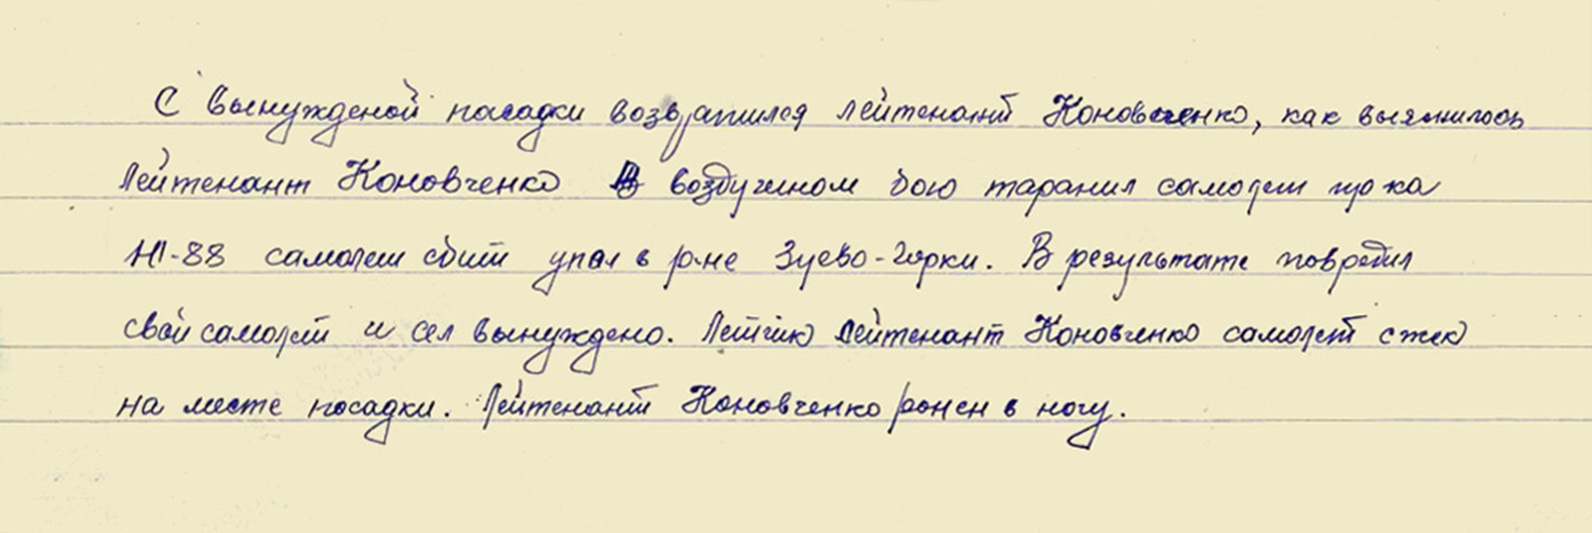 С вынужденой посадки возвратился лейтенант Коновченко, как выяснилось
Лейтенант Коновченко В воздушном бою таранил самолет пр-ка
Ю-88 самолет сбит упал в р-не Зуево-Горки. В результате повредил
свой самолет и сел вынуждено. Летчик лейтенант Коновченко самолет сжег
на месте посадки. Лейтенант Коновченко ранен в ногу.